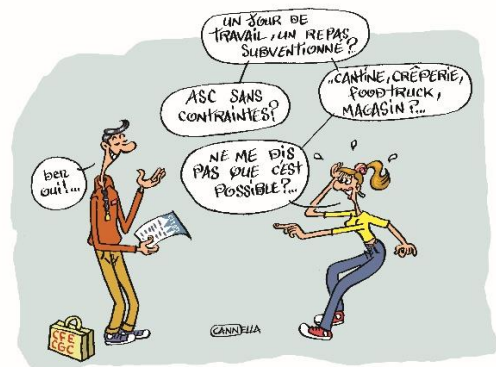 UN JOUR DE
TRAVAIL, UN REPAS
SUBVENTIONNÉ?..
ASC SANS
CONTRAINTES?
..CANTINE, CRÊPERIE,
FOODTRUCK,
MAGASIN?...
NE ME DIS
PAS QUE C'EST
POSSIBLE?...
ben
oui!...
CFE
CGC
CANNELLA